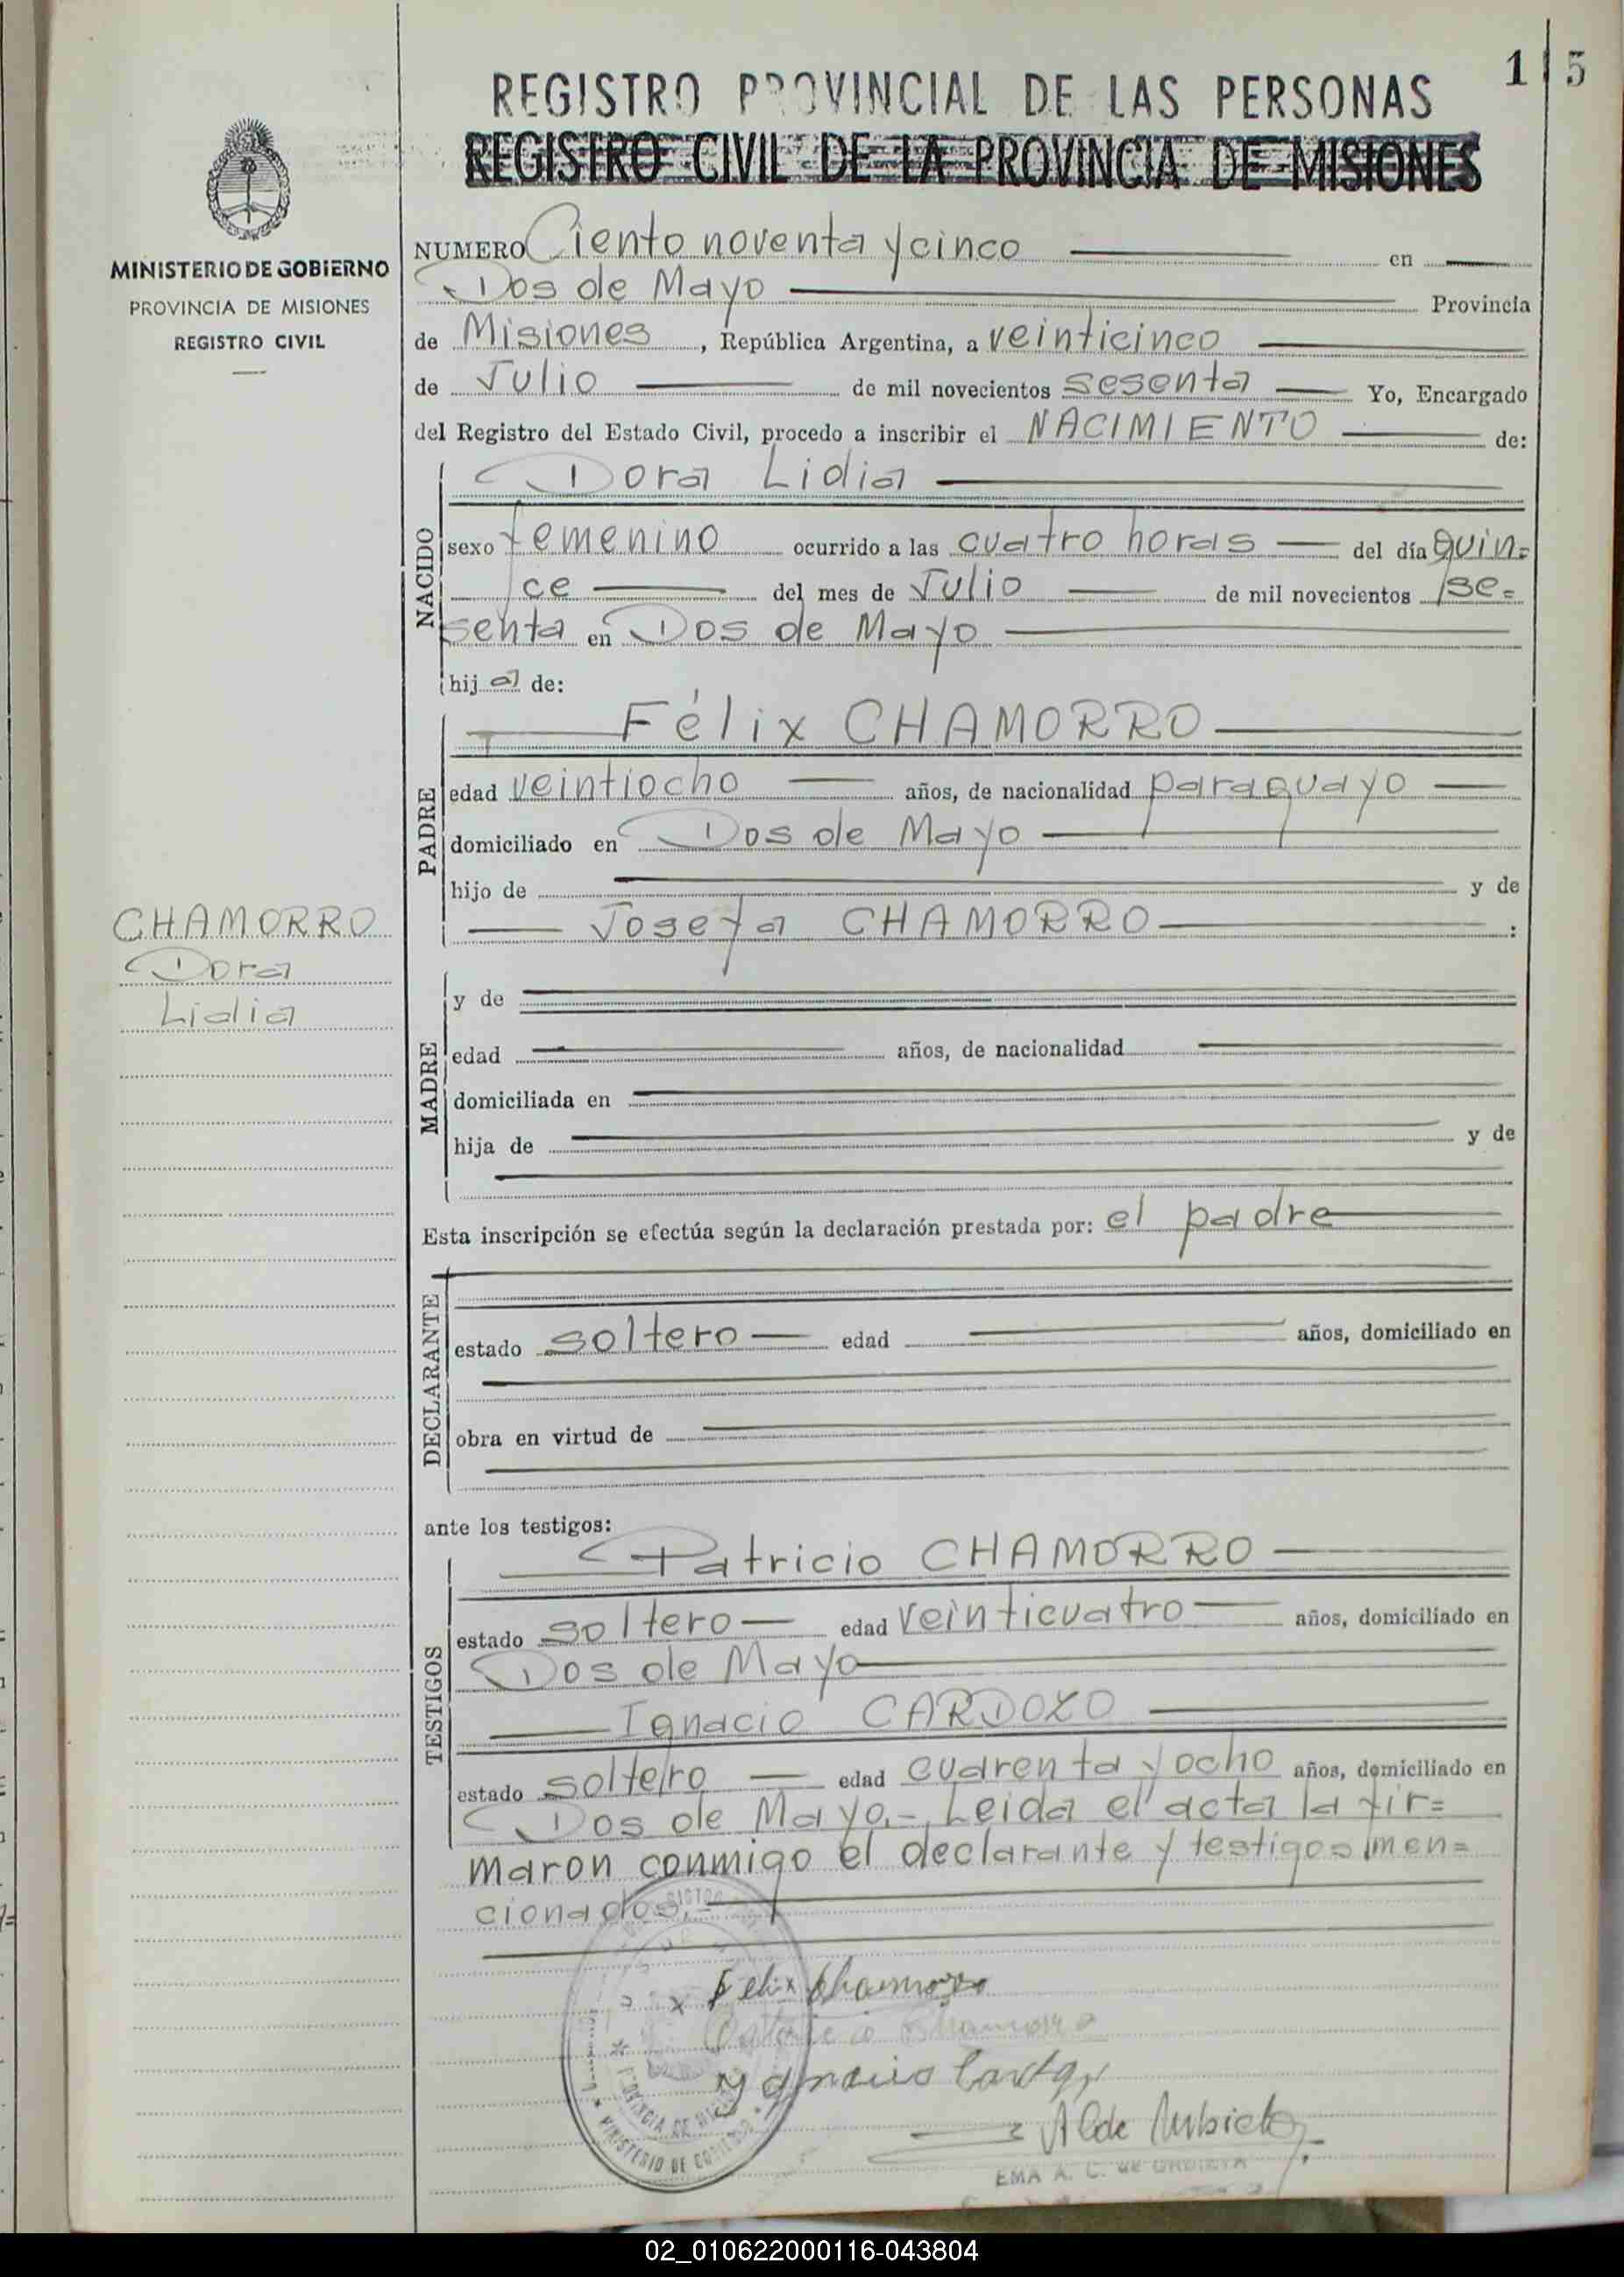 115
REGISTRO PROVINCIAL DE LAS PERSONAS
REGISTRO CIVIL DE LA PROVINCIA DE MISIONES
MINISTERIO DE GOBIERNO
PROVINCIA DE MISIONES
REGISTRO CIVIL
NUMERO Ciento noventa y cinco en
Dos de Mayo Provincia
de Misiones, República Argentina, a veinticinco
de Julio de mil novecientos sesenta Yo, Encargado
del Registro del Estado Civil, procedo a inscribir el NACIMIENTO de:
NACIDO
Dora Lidia
sexo femenino ocurrido a las cuatro horas del día quin=
ce del mes de Julio de mil novecientos se=
senta en Dos de Mayo
hija de:
PADRE
Félix CHAMORRO
edad veintiocho años, de nacionalidad paraguayo
domiciliado en Dos de Mayo
hijo de y de
Josefa CHAMORRO :
CHAMORRO
Dora
Lidia
MADRE
y de
edad años, de nacionalidad
domiciliada en
hija de y de
Esta inscripción se efectúa según la declaración prestada por: el padre
DECLARANTE
estado soltero edad años, domiciliado en
obra en virtud de
ante los testigos:
TESTIGOS
Patricio CHAMORRO
estado soltero edad veinticuatro años, domiciliado en
Dos de Mayo
Ignacio CARDOZO
estado soltero edad cuarenta y ocho años, domiciliado en
Dos de Mayo.- Leida el acta la fir=
maron conmigo el declarante y testigos men=
cionados.-
x Felix Chamorro
Patricio Chamorro
MINISTERIO DE GOBIERNO
EMA A. C. de URBIETA
02_010622000116-043804